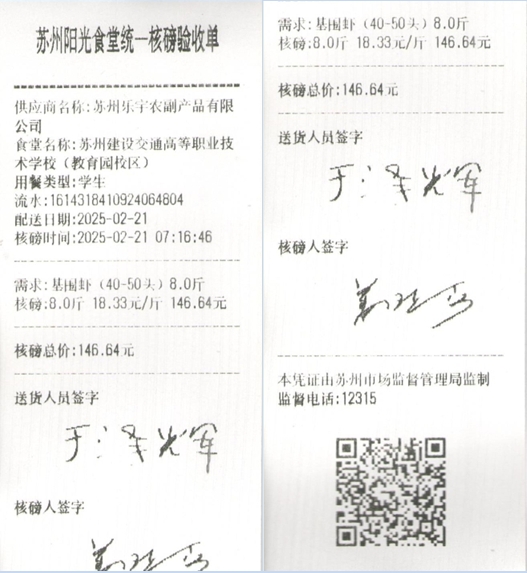 苏州阳光食堂统一核磅验收单
供应商名称:苏州乐宇农副产品有限
公司
食堂名称:苏州建设交通高等职业技
术学校（教育园校区）
用餐类型:学生
流水:1614318410924064804
配送日期:2025-02-21
核磅时间:2025-02-21 07:16:46
需求:基围虾（40-50头）8.0斤
核磅:8.0斤 18.33元/斤 146.64元
核磅总价:146.64元
送货人员签字
核磅人签字
需求:基围虾（40-50头）8.0斤
核磅:8.0斤 18.33元/斤 146.64元
核磅总价:146.64元
送货人员签字
核磅人签字
本凭证由苏州市场监督管理局监制
监督电话:12315